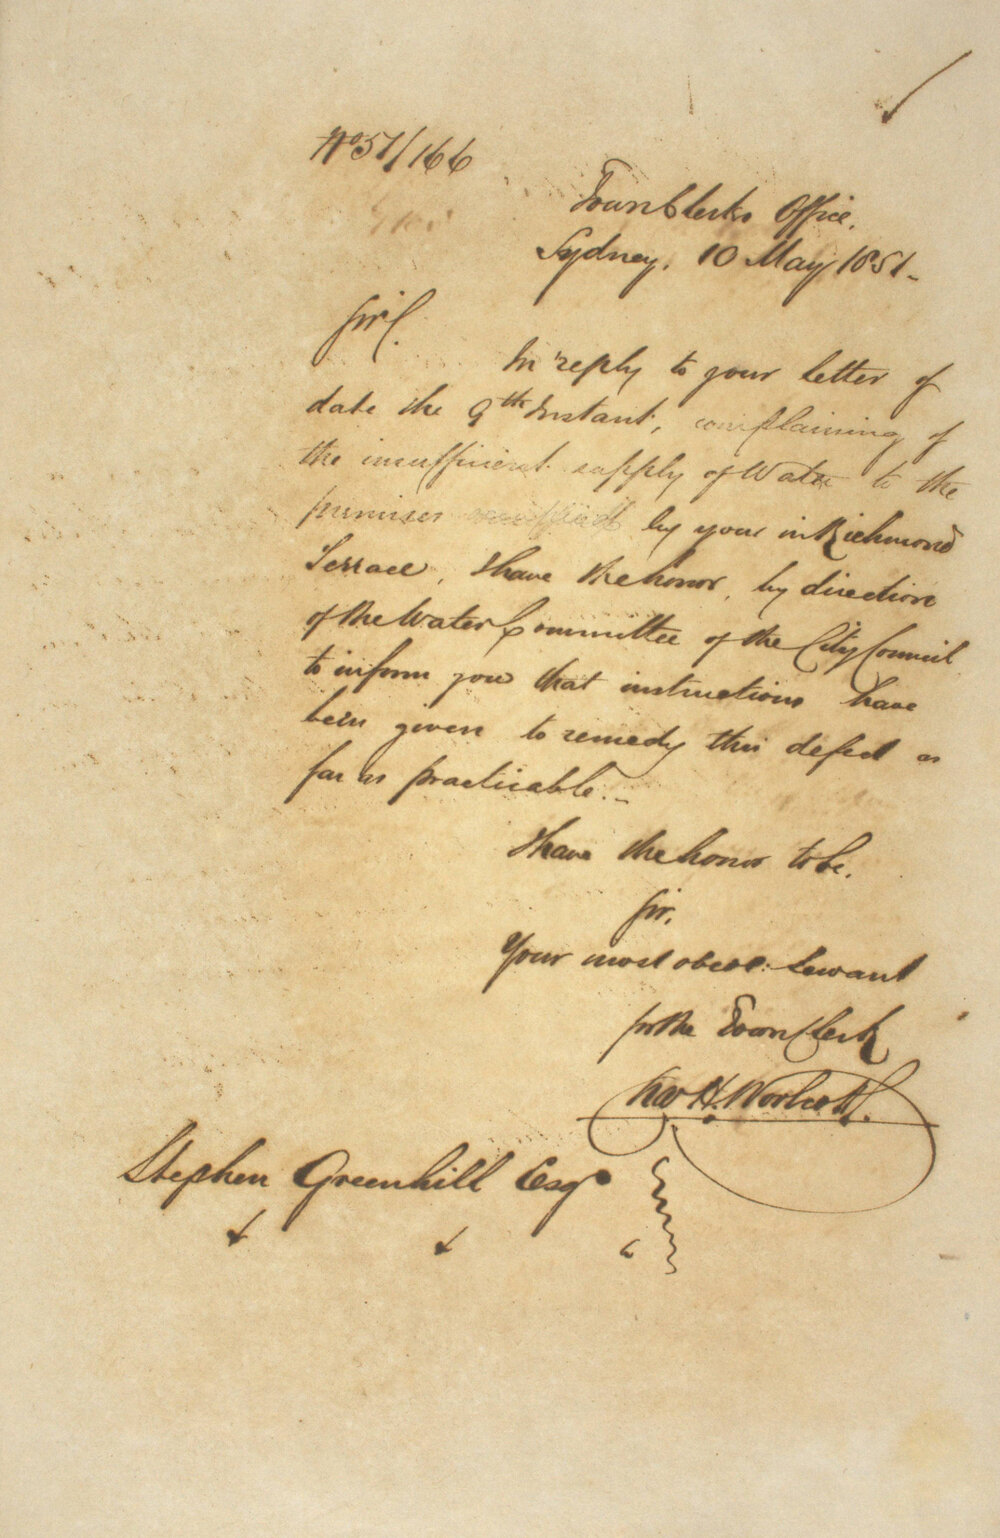 No 51/166
Town Clerks Office.
Sydney, 10 May 1851.
Sir,
In reply to your letter of
date the 9th Instant, complaining of
the insufficient supply of Water to the
premises occupied by your in Richmond
Terrace, I have the honor, by direction
of the Water Committee of the City Council
to inform you that instructions have
been given to remedy this defect as
far as practicable.
I have the honor to be.
Sir,
Your most obedt: Servant
for the Town Clerk
H. Worlcott.
Stephen Greenhill Esqr